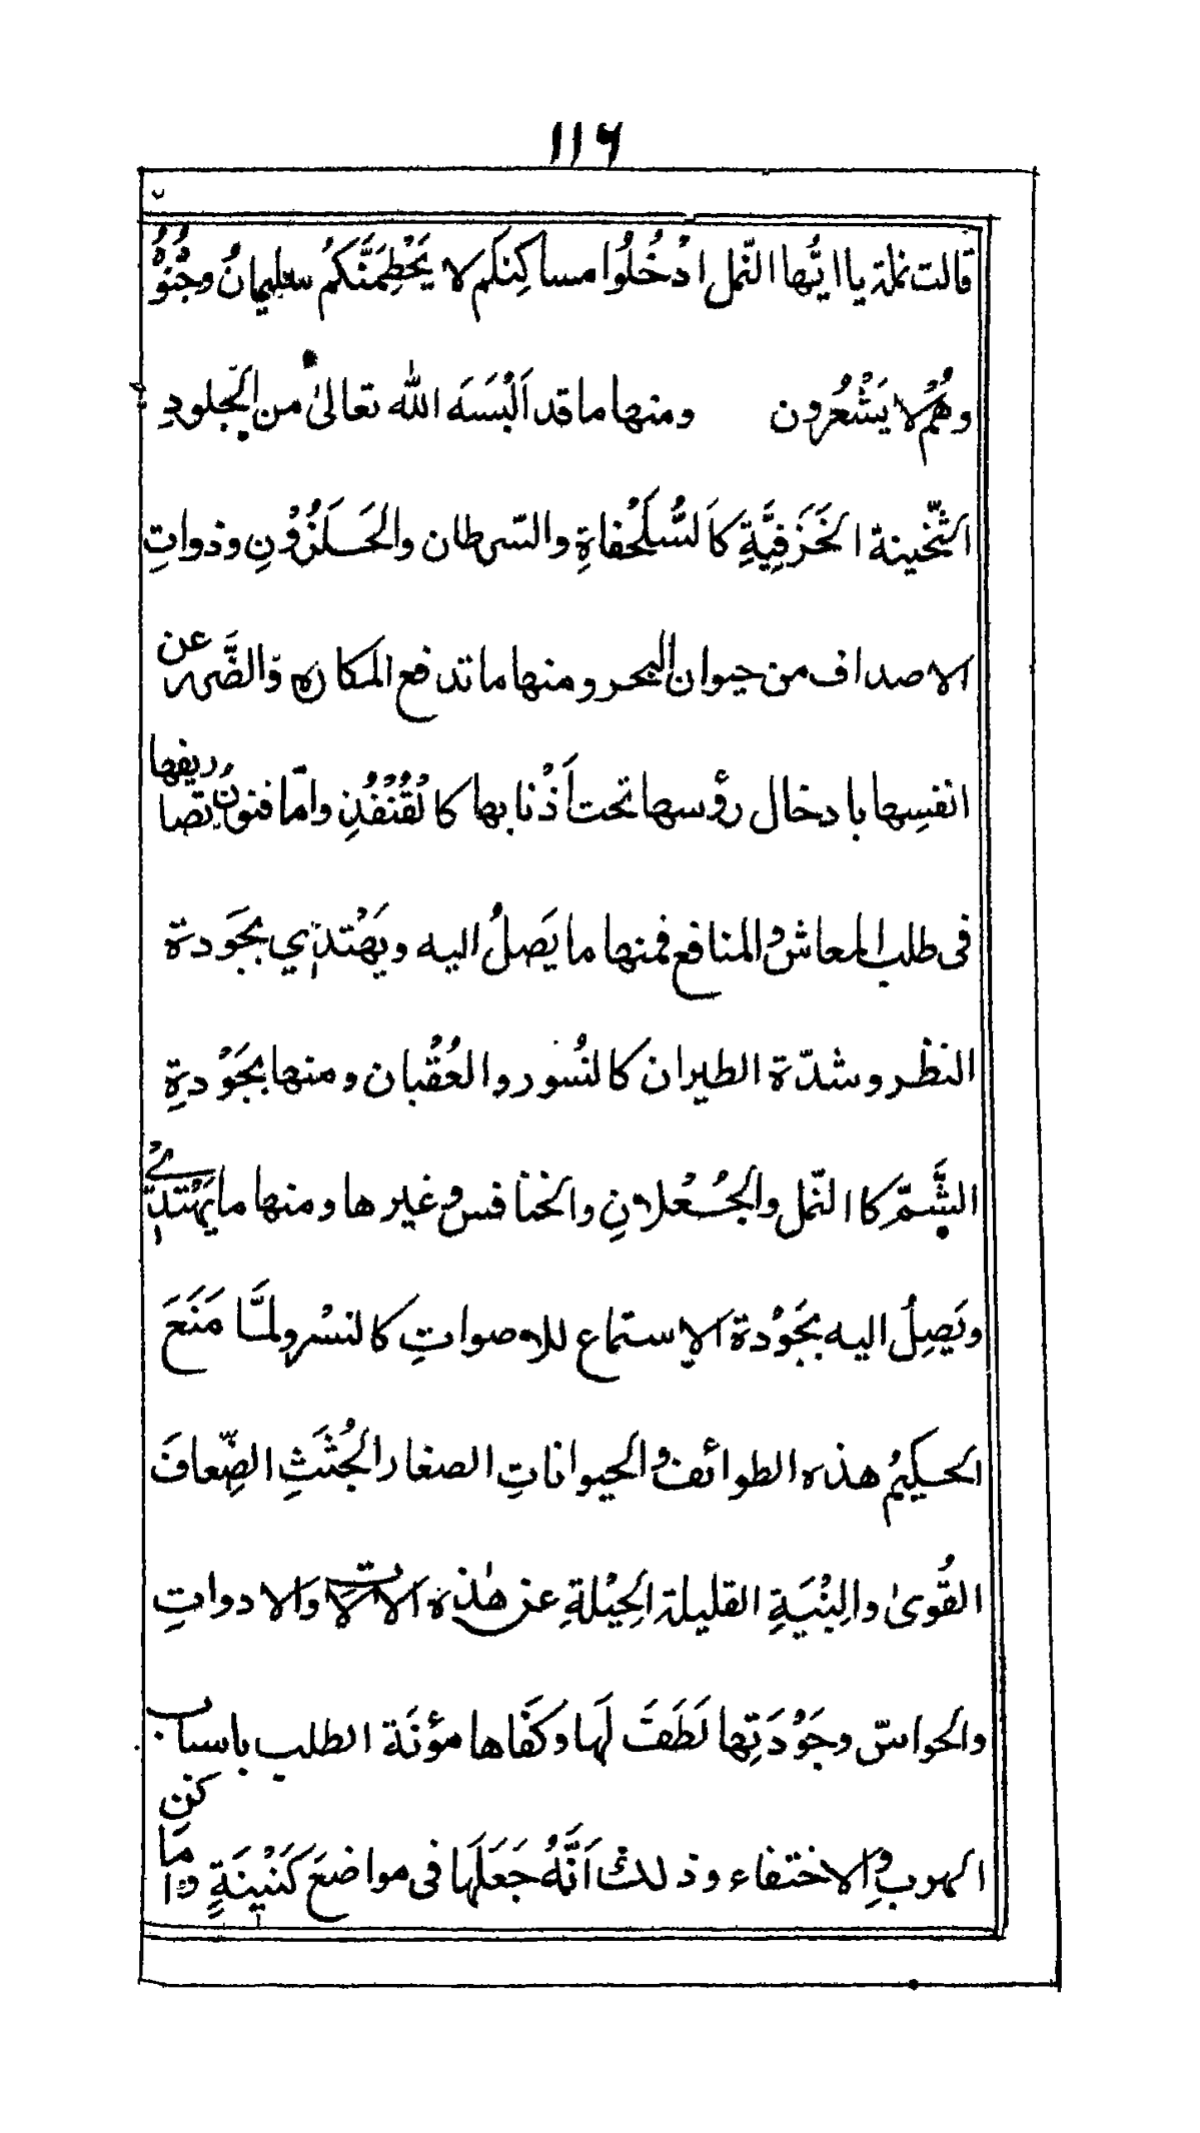 ١١٦
قالت نملة يا ايُّها النّمل ادْخُلُوا مساكِنكم لا يَحْطِمَنَّكُمْ سليمانُ وجُنُودُهُ
وهُمْ لا يَشْعُرُون ومنها ما قد اَلْبَسَه الله تعالىٰ من الجُلودِ
الثّخينة الخَزَفِيَّةِ كَالسُّلَحْفاةِ والسّرطان والحَلَزُوْنِ وذواتِ
الاصداف من حيوان البحر ومنها ما تدفع المكاره والضَّرر عن
انفسِها بادخال رؤسها تحت اَذْنابها كالقُنْفُذِ وامّا فنونُ تصاريفها
فى طلب المعاش والمنافع فمنها ما يَصِلُ اليه ويَهْتدِي بجَودة
النظر وشدّة الطيران كالنُسور والعُقْبان ومنها بجَوْدةِ
الشَّمِّ كا النّمل والجُعْلانِ والخنافس وغيرها ومنها ما يَهْتدِيْ
ويَصِلُ اليه بجَوْدة الاستماع للاصواتِ كالنسْر ولمّا مَنَعَ
الحكيمُ هذه الطوائف والحيواناتِ الصغار الجُثَثِ الضِّعافَ
القُوىٰ والبِنْيَةِ القليلة الحِيْلةِ عن هٰذه الالات والادواتِ
والحواسّ وجَوْدَتِها لَطَفَ لَها وكَفَاها مؤنَة الطلب باسباب
الهرب والاختفاء وذلك اَنَّهُ جَعَلَها فى مواضعَ كَنِيْنَةٍ